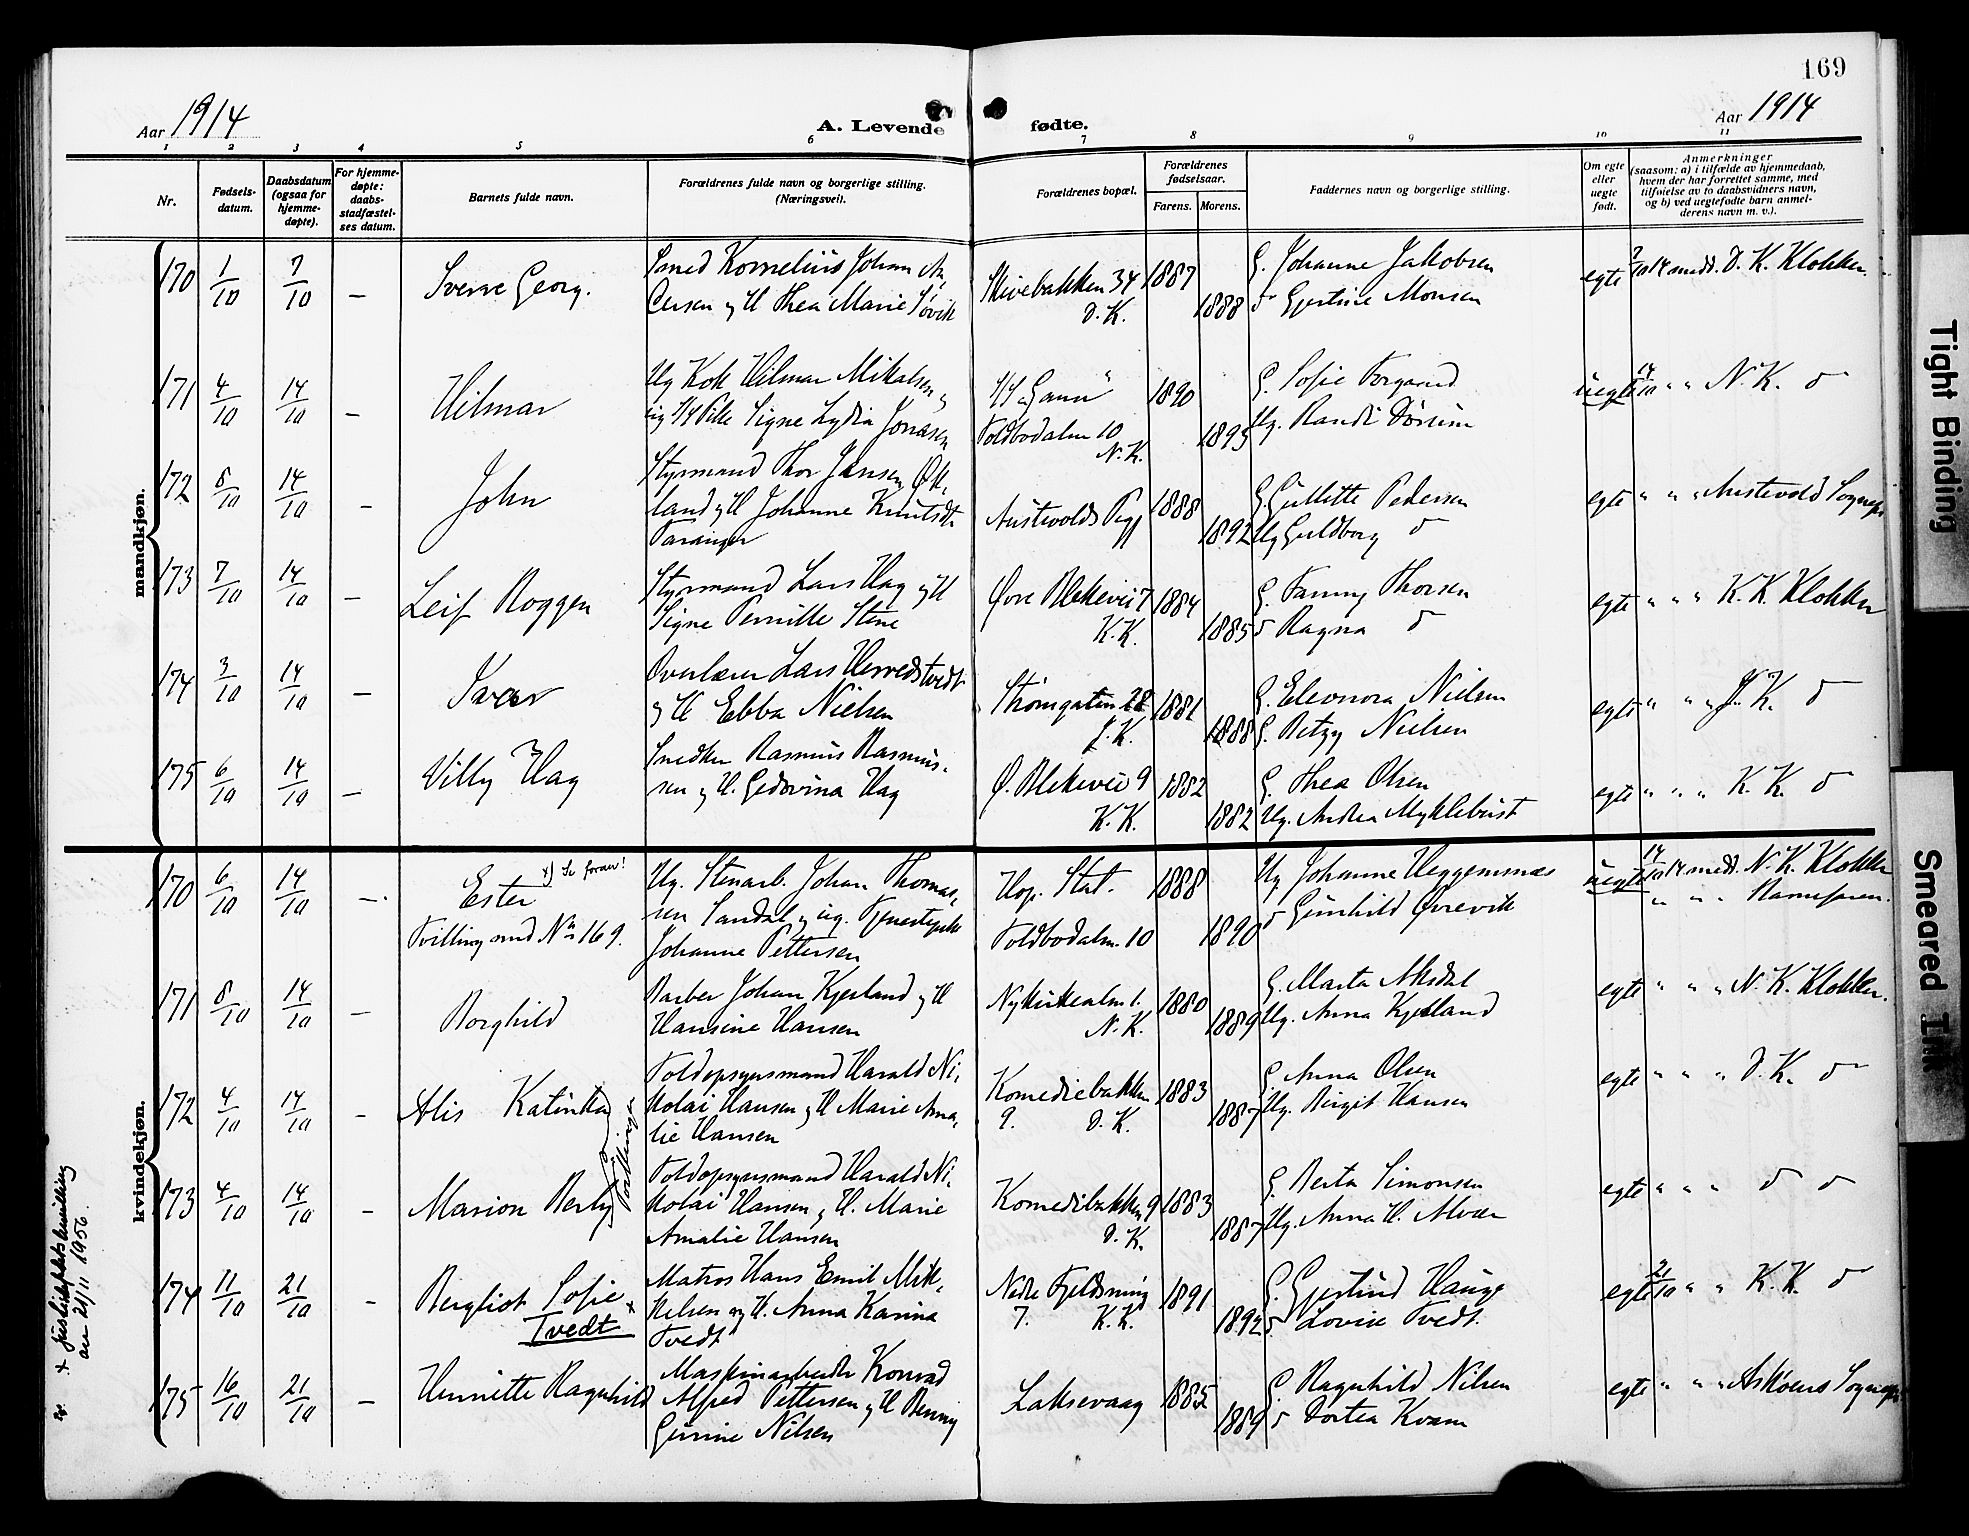 169
Aar 1914
A. Levende fødte.
Aar 1914
1 2 3 4 5 6 7 8 9 10 11
Nr.
Fødsels-
datum.
Daabsdatum
(ogsaa for
hjemme-
døpte).
For hjemme-
døpte:
daabs-
stadfæstel-
ses datum.
Barnets fulde navn.
Forældrenes fulde navn og borgerlige stilling.
(Næringsvei).
Forældrenes bopæl.
Forældrenes
fødselsaar.
Farens. Morens.
Faddernes navn og borgerlige stilling.
Om egte
eller
uegte
født.
Anmerkninger
(saasom: a) i tilfælde av hjemmedaab,
hvem der har forrettet samme, med
tilføielse av to daabsvidners navn,
og b) ved uegtefødte barn anmel-
derens navn m. v.).
mandkjøn.
170 1/10 7/10 — Sverre Georg.
Smed Kornelius Johan An,
Cersen og H Thea Marie Søvik
Skivebakken 34
D. K.
1887
1888
G. Johanne Jakobsen
D Gjertine Monsen
egte 7/10 14 medd. D. K. Klokker
171 4/10 14/10 — Hilmar
Ug Kok Hilmar Mikalsen
Signe Lydia Jonasen
Toldbodalm 10
N. K.
1890
1893
G. Sofie
Ug. Randi
uegte 14/10 " " N. K. D
172 8/10 14/10 — John
Styrmand Thor Jansen Øk,
land og H Johanne Knutsdt.
Taranger
Austevolds Pgj
1888
1892
G. Gullitte Pedersen
Ug Guldborg D
egte " " " Austevold Sognepr
173 7/10 14/10 — Leif Roggen
Styrmand Lars Hag og H
Signe Pernille Stene
Øvre Blekevei 7
K. K.
1884
1885
G. Fanny Thorsen
D Ragna D
egte " " " K. K. Klokker
174 3/10 14/10 — Ivar
Overlærer Lars Herredstvedt
og H Ebba Nielsen
Strømgaten 28
J. K.
1881
1888
G. Eleonora Nielsen
G. Betzy Nielsen
egte " " " J. K. D
175 6/10 14/10 — Villy Hag
Snedker Rasmus Rasmus-
sen og H. Gedsvina Hag
Ø. Blekevei 9
K. K.
1882
1882
G. Thea Olsen
Ug. Andrea Myklebust
egte " " " K. K. D
kvindekjøn.
170 6/10 14/10 — Ester x) Se foran!
Tvilling med No 169.
Ug. Stenarb. Johan Thomas,
sen Sandal og ug. Tjenestepike
Johanne Pettersen
Hop. Stat.
Toldbodalm. 10
1888
1890
Ug Johanne Heggemsnes
D Gunhild Øvrevik
uegte 14/10 14 medd. N. K. Klokker
" " "
171 8/10 14/10 — Borghild
Barber Johan Kjesland og H
Hansine Hansen
Nykirkealm 1.
N. K.
1880
1889
G. Marta Aksdal
Ug. Anna Kjesland
egte " " " N. K. Klokker.
172 4/10 14/10 — Alis Katinka
Toldopsynsmand Harald Ni,
kolai Hansen og H Marie Ama,
lie Hansen
Komediebakken
9. D. K.
1883
1887
G. Anna Olsen
Ug. Birgit Hansen
egte " " " D. K. D
Tvillinger
173 4/10 14/10 — Marion Berly
Toldopsynsmand Harald Ni,
kolai Hansen og H. Marie
Amalie Hansen
Komediebakken 9
D. K.
1883
1887
G. Berta Simonsen
Ug. Anna H. Alver
egte " " " D D
174 11/10 21/10 — Bergliot Sofie x
Tvedt
Matros Hans Emil Mik,
kelsen og H. Anna Karina
Tvedt
Nedre Fjeldsmug
7. K. K.
1891
1892
G. Gjertrud Hauge
D Lovise Tvedt.
egte 21/10 " " K. K. D
175 16/10 21/10 — Henriette Ragnhild
Maskinarbeider Konrad
Alfred Pettersen og H Benny
Gurine Nilsen
Laksevaag
1885
1889
G. Ragnhild Nilsen
D Dortea Kvam
egte " " " Askøens Sognepr
av 21/11 1956.
Tight Binding
Smeared Ink